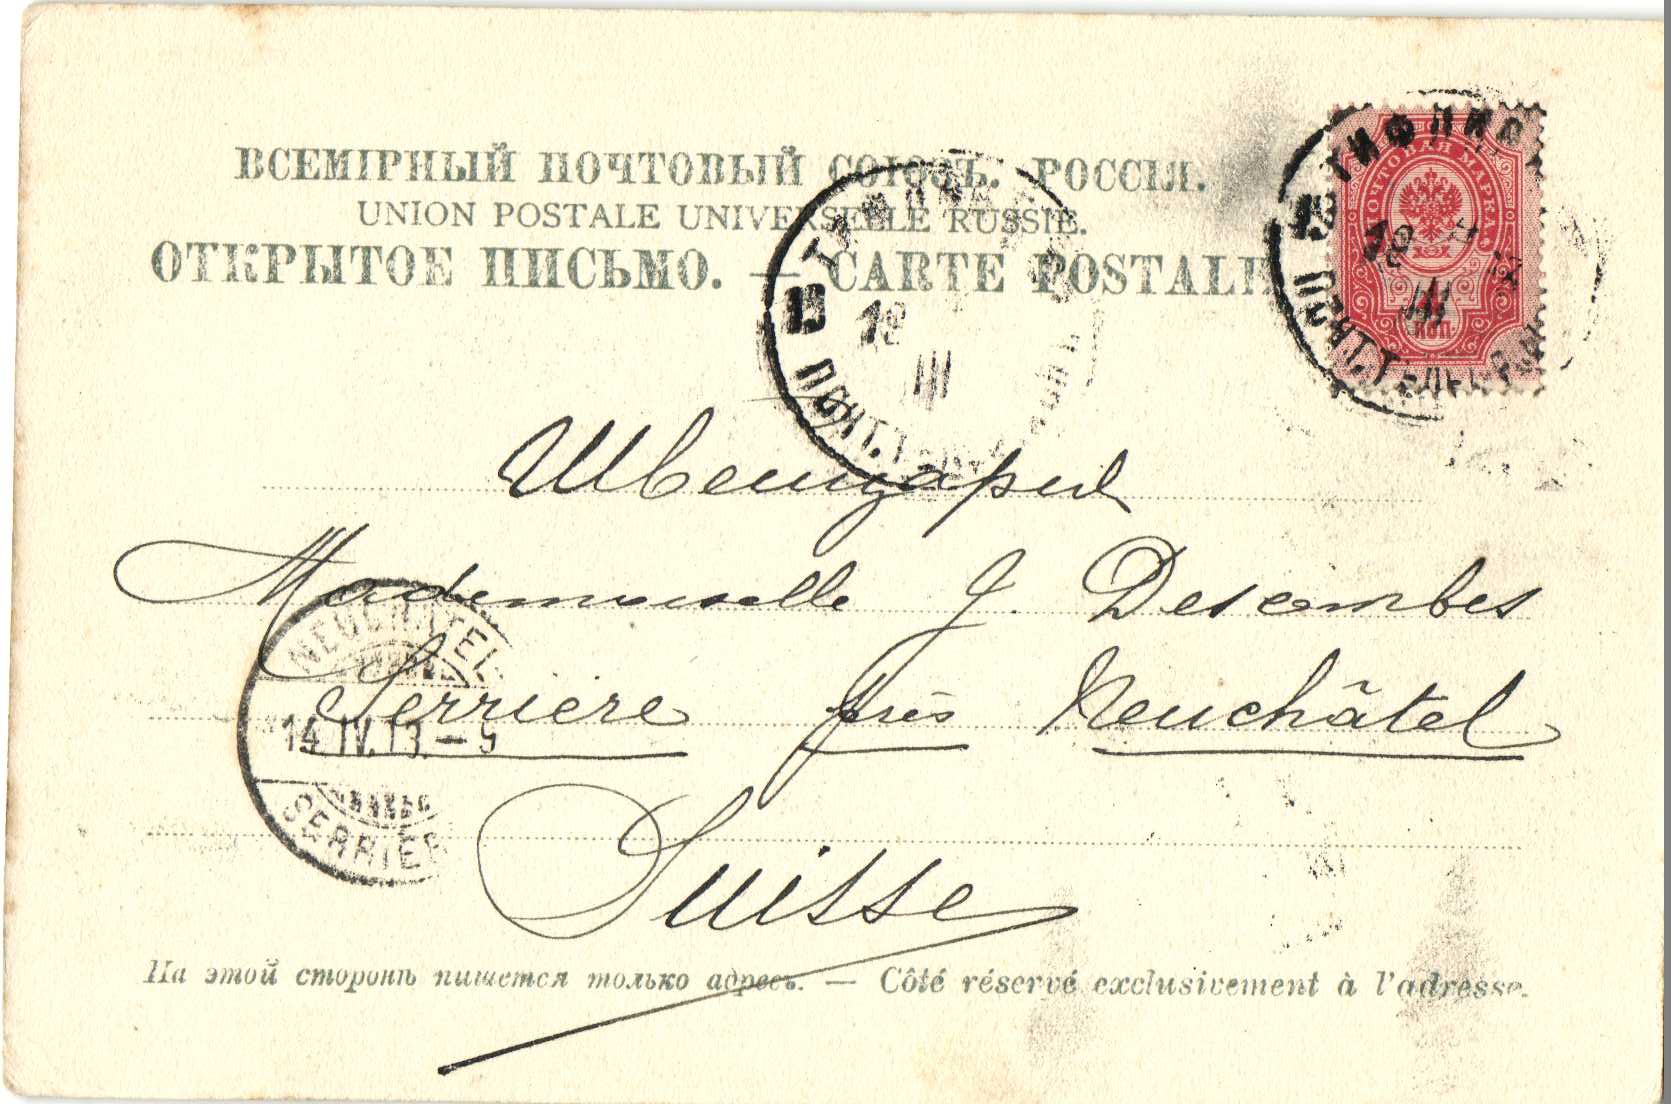 ВСЕМІРНЫЙ ПОЧТОВЫЙ СОЮЗЪ. РОССІЯ.
UNION POSTALE UNIVERSELLE RUSSIE.
ОТКРЫТОЕ ПИСЬМО. — CARTE POSTALE
ТИФЛИС
ПОЧТОВАЯ МАРКА
18
III
КОП
13
18
III
ПОЧТ. ТЕЛ
Швейцарія
Mademoiselle J. Descombes
Serrière près Neuchâtel
Suisse
NEUCHATEL
14.IV.13.–9
SERRIER
На этой сторонѣ пишется только адресъ. — Côté réservé exclusivement à l'adresse.